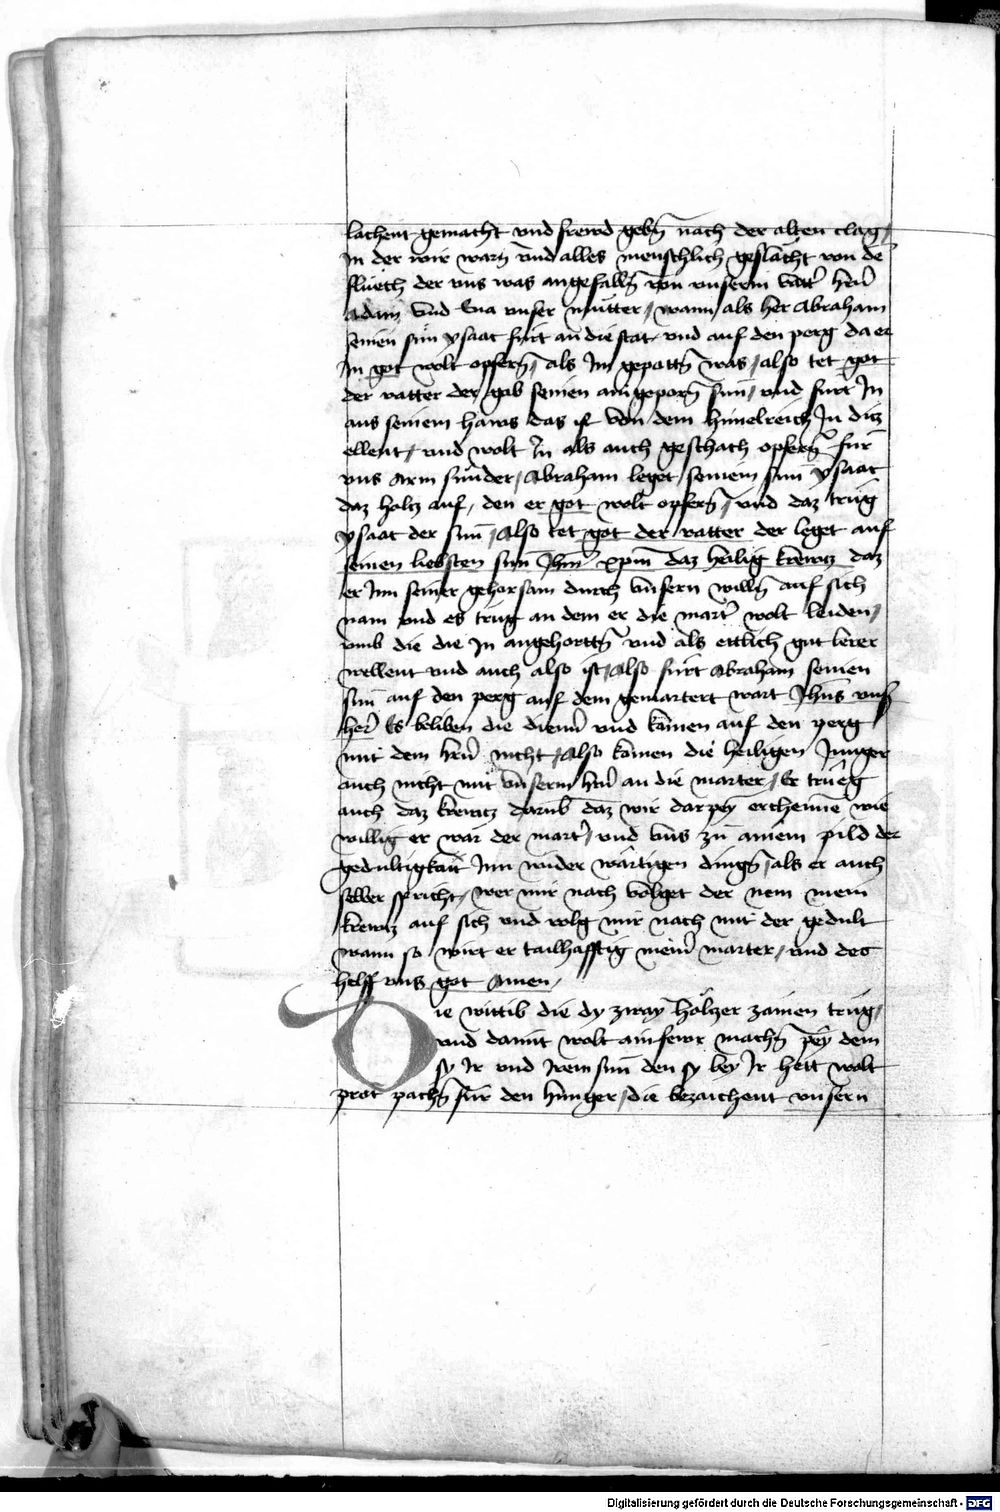 lachent gemacht vnd frewd gebn̄ nach der alten clag /
In der wir warn̄ vnd alles menschlich geslächt von de
flüech der vns was angefalln̄ von vnserm vatt̄ hern̄
Adam vnd Eua vnser muetter / wann als her Abraham
seinen sün ysaac fürt an die stat vnd auf den perg da er
In got wolt opfern̄ / als Im gepottn̄ was / also tet got
der vatter der gab seinen aingeporn̄ sun̄ / vnd fürt In
aus seinem haws das ist von dem himelreich In ditz
ellent / vnd wolt In als auch geschach opfern̄ für
vns arm sünder / Abraham leget seinem sun̄ ysaac
daz holtz auf / den er got wolt opfern̄ / vnd daz trüg
ysaac der sun̄ / Also tet got der vatter der leget auf
seinen liebsten sun̄ Ihm̄ xpm̄ daz heilig krewtz daz
er Inn seiner gehorsam durch vnsern willn̄ auf sich
nam vnd es trüg an dem er die mart̄ wolt leiden /
vmb die die In angehorttn̄ vnd als ettlich gut lerer
wellent vnd auch also ist / Also fürt Abraham seinen
sun̄ auf den perg auf dem gemartert wart Ihūs vns̄
her̄ Es beliben die dienn̄ vnd kamen auf den perg
mit dem hrn̄ nicht / Also komen die heiligen Junger
auch nicht mit vnserm hrn̄ an die marter / Er trueg
auch daz krewtz darub̄ daz wir darpey erchenne wie
willig er war der mart̄ / vnd vns zu ainem pild der
gedultigkait Inn wider wärtigen dingn̄ / als er auch
selber spricht / wer mir nach volget der nem mein
krewtz auf sich vnd volg mir nach mit der gedult
wann so wirt er tailhafftig mein̄ marter / vnd des
helff vns got Amen /
Die wittib die dy zway höltzer zamen trüg /
vnd damit wolt ain fewr machn̄ pey dem
sy Ir vnd Irem sun̄ den sy bey Ir hett wolt
prot pachn̄ für den hunger / die bezaichent vnsern
Digitalisierung gefördert durch die Deutsche Forschungsgemeinschaft - DFG